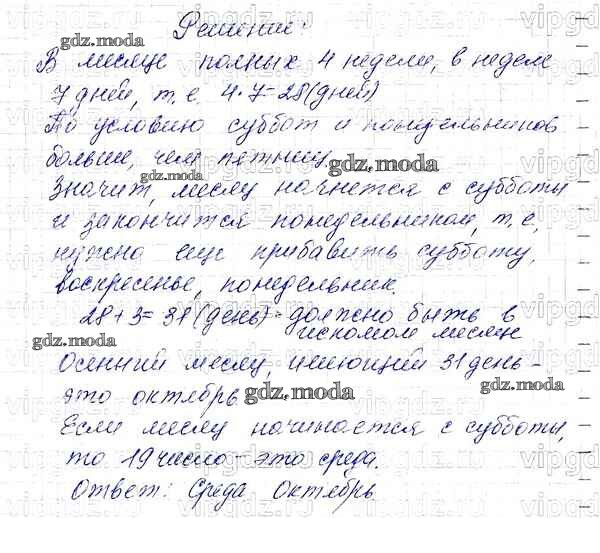 Решение:
В месяце полных 4 недели, в неделе
7 дней, т. е. 4·7=28 (дней)
По условию суббот и понедельников
больше, чем пятниц.
Значит, месяц начнется с субботы
и закончится понедельником, т. е,
нужно еще прибавить субботу,
воскресенье, понедельник.
28+3=31 (день) - должно быть в
искомом месяце
Осенний месяц, имеющий 31 день -
это октябрь
Если месяц начинается с субботы,
то 19 число - это среда.
Ответ: среда октябрь
gdz.moda
gdz.moda
gdz.moda
gdz.moda
gdz.moda
gdz.moda
gdz.moda